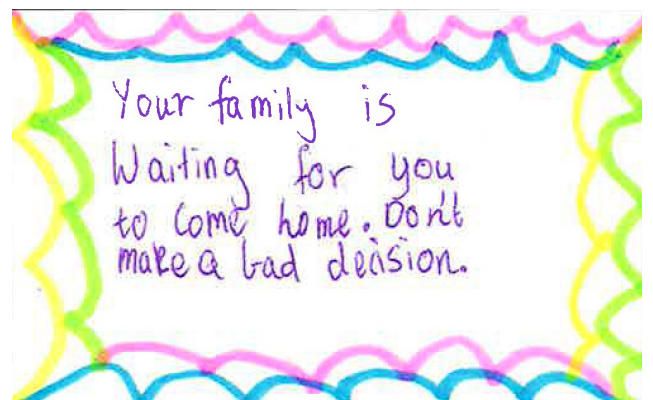 Your family is
Waiting for you
to come home. Don't
make a bad decision.